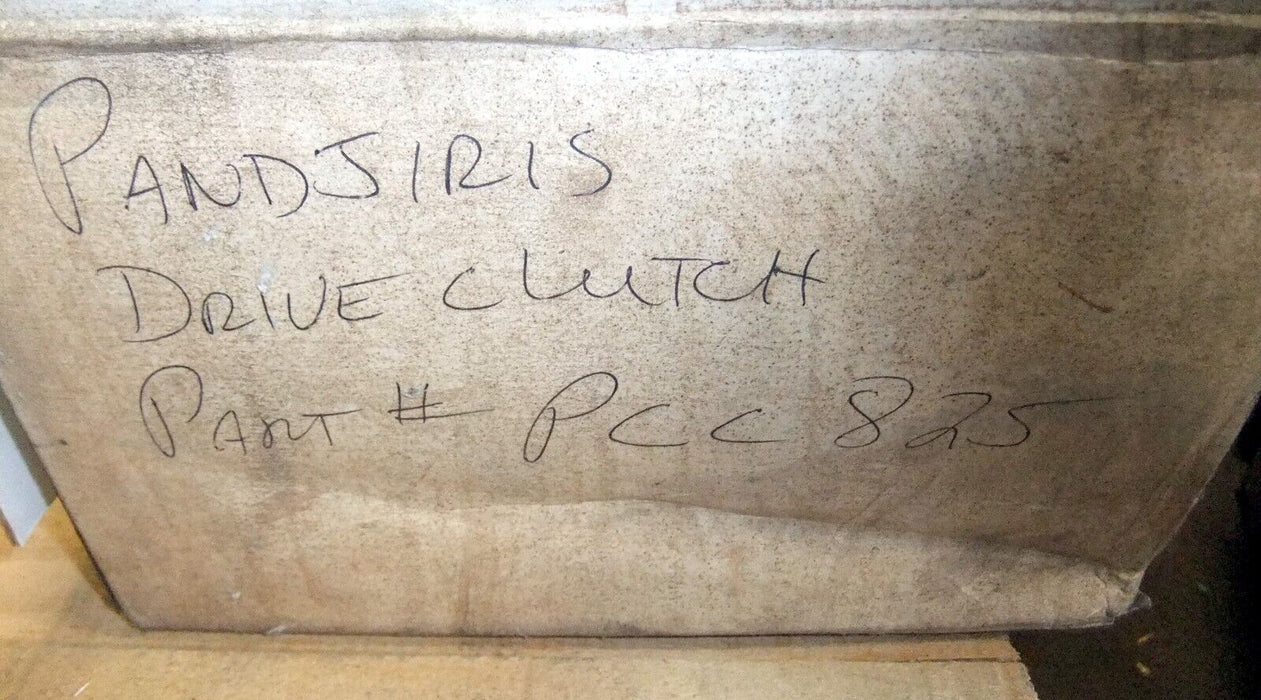 PANDJIRIS
DRIVE CLUTCH
PART # PCC 825